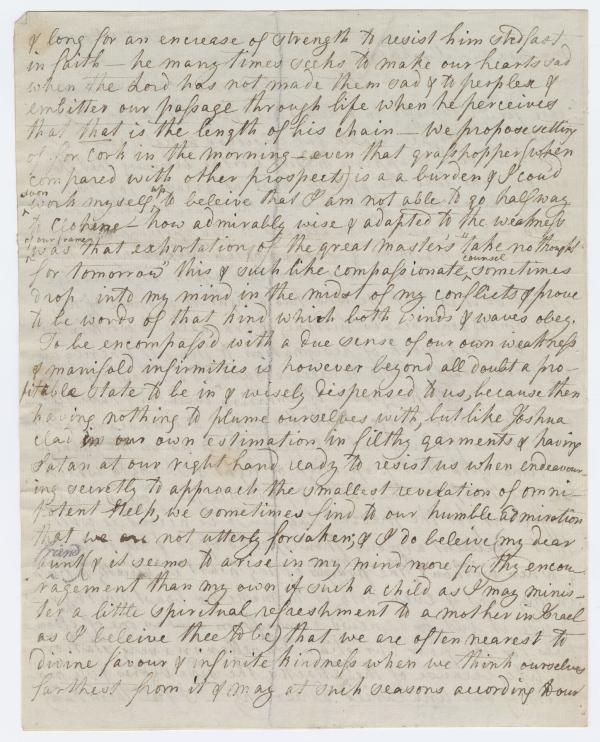 & long for an encrease of strength to resist him stedfast
in faith — he many times seeks to make our hearts sad
when the Lord has not made them sad & to perplex &
embitter our passage through life when he perceives
that that is the length of his chain — we propose setting
of for Cork in the morning — even that grasshopper (when
compared with other prospects) is a a burden & I cou'd
soon
work myself up to beleive that I am not able to go half way
to — how admirably wise & adapted to the weakness
of our frame
was that exhortation of the great masters "take no thought
for tomorrow" this & such like compassionate counsel sometimes
drop into my mind in the midst of my conflicts & prove
to be words of that kind which both winds & waves obey.
To be encompass'd with a due sense of our own weakness
& manifold infirmities is however beyond all doubt a pro-
fitable state to be in & wisely dispensed to us, because then
having nothing to plume ourselves with, but like Joshua
clad in our own estimation in filthy garments & having
Satan at our right hand ready to resist us when endeavour-
ing secretly to approach the smallest revelation of omni-
potent Help, we sometimes find to our humble admiration
that we are not utterly forsaken; & I do beleive my dear
grand
aunt (& it seems to arise in my mind more for thy encou-
ragement than my own if such a child as I may minis-
ter a little spiritual refreshment to a mother in Israel
as I beleive thee to be) that we are often nearest to
divine favour & infinite kindness when we think ourselves
farthest from it & may at such seasons according to our